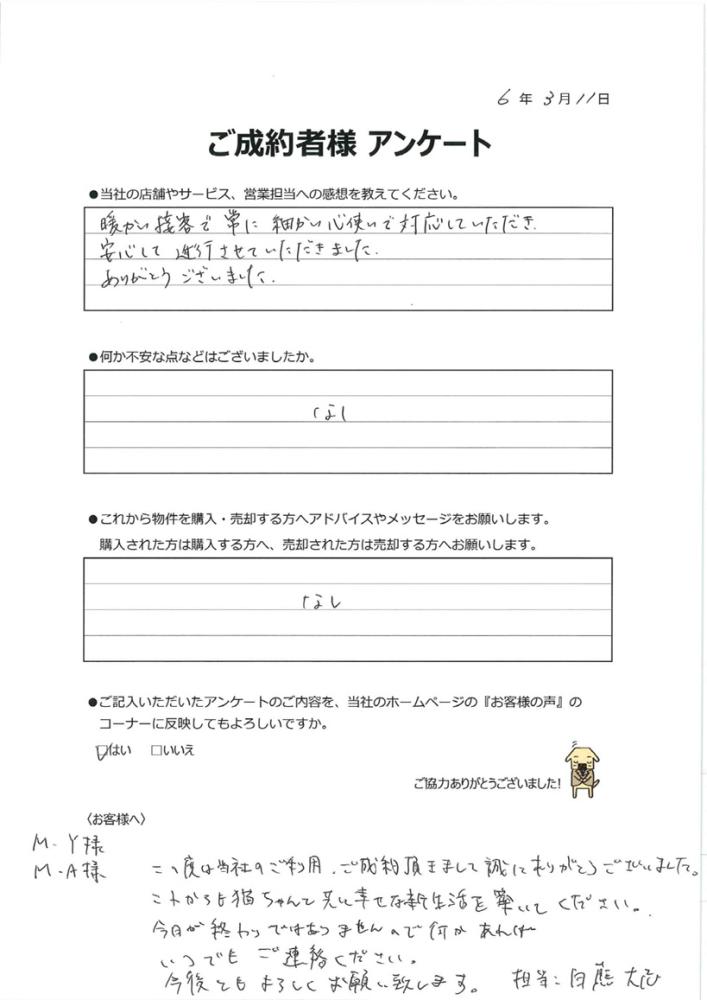 6年 3月11日
ご成約者様 アンケート
●当社の店舗やサービス、営業担当への感想を教えてください。
暖かい接客で常に細かい心使いで対応していただき、
安心して進行させていただきました。
ありがとうございました。
●何か不安な点などはございましたか。
なし
●これから物件を購入・売却する方へアドバイスやメッセージをお願いします。
購入された方は購入する方へ、売却された方は売却する方へお願いします。
なし
●ご記入いただいたアンケートのご内容を、当社のホームページの『お客様の声』の
コーナーに反映してもよろしいですか。
☑はい □いいえ
ご協力ありがとうございました!
〈お客様へ〉
M・Y様
M・A様
この度は当社のご利用、ご成約頂きまして誠にありがとうございました。
これからも猫ちゃんと共に幸せな新生活を築いてください。
今日が終わりではありませんので何かあれば
いつでもご連絡ください。
今後ともよろしくお願い致します。 担当:白鷹